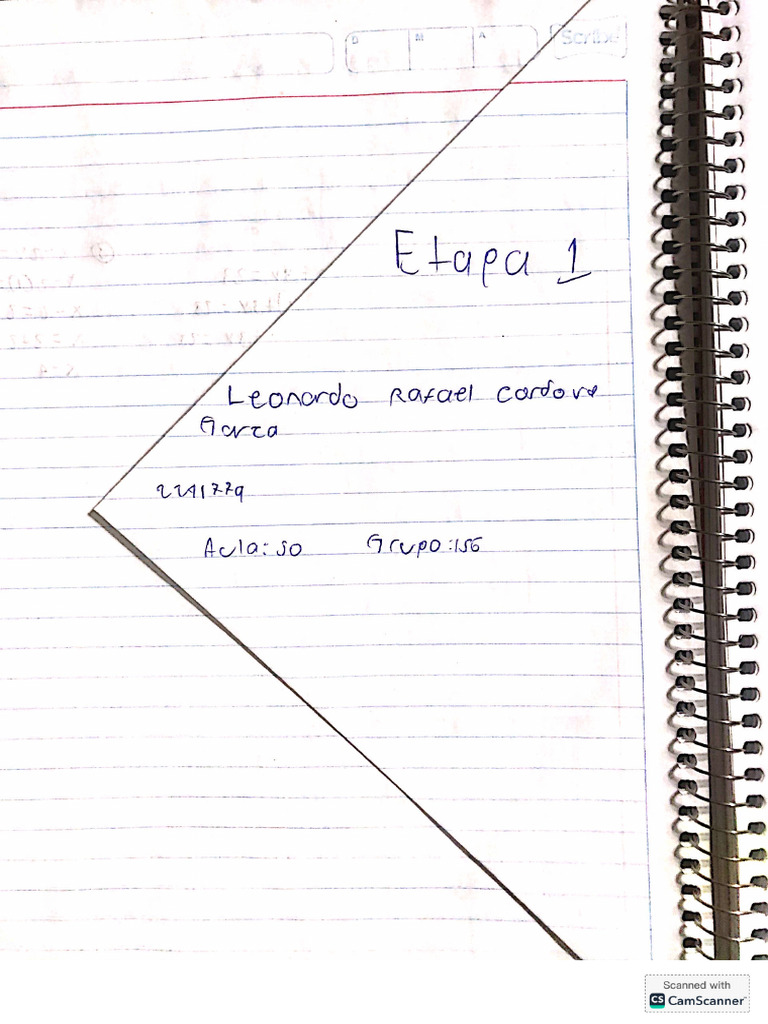 D M A Scribe
Etapa 1
Leonardo Rafael Cordova
Garza
Aula: 50 Grupo: 156
Scanned with
CS CamScanner